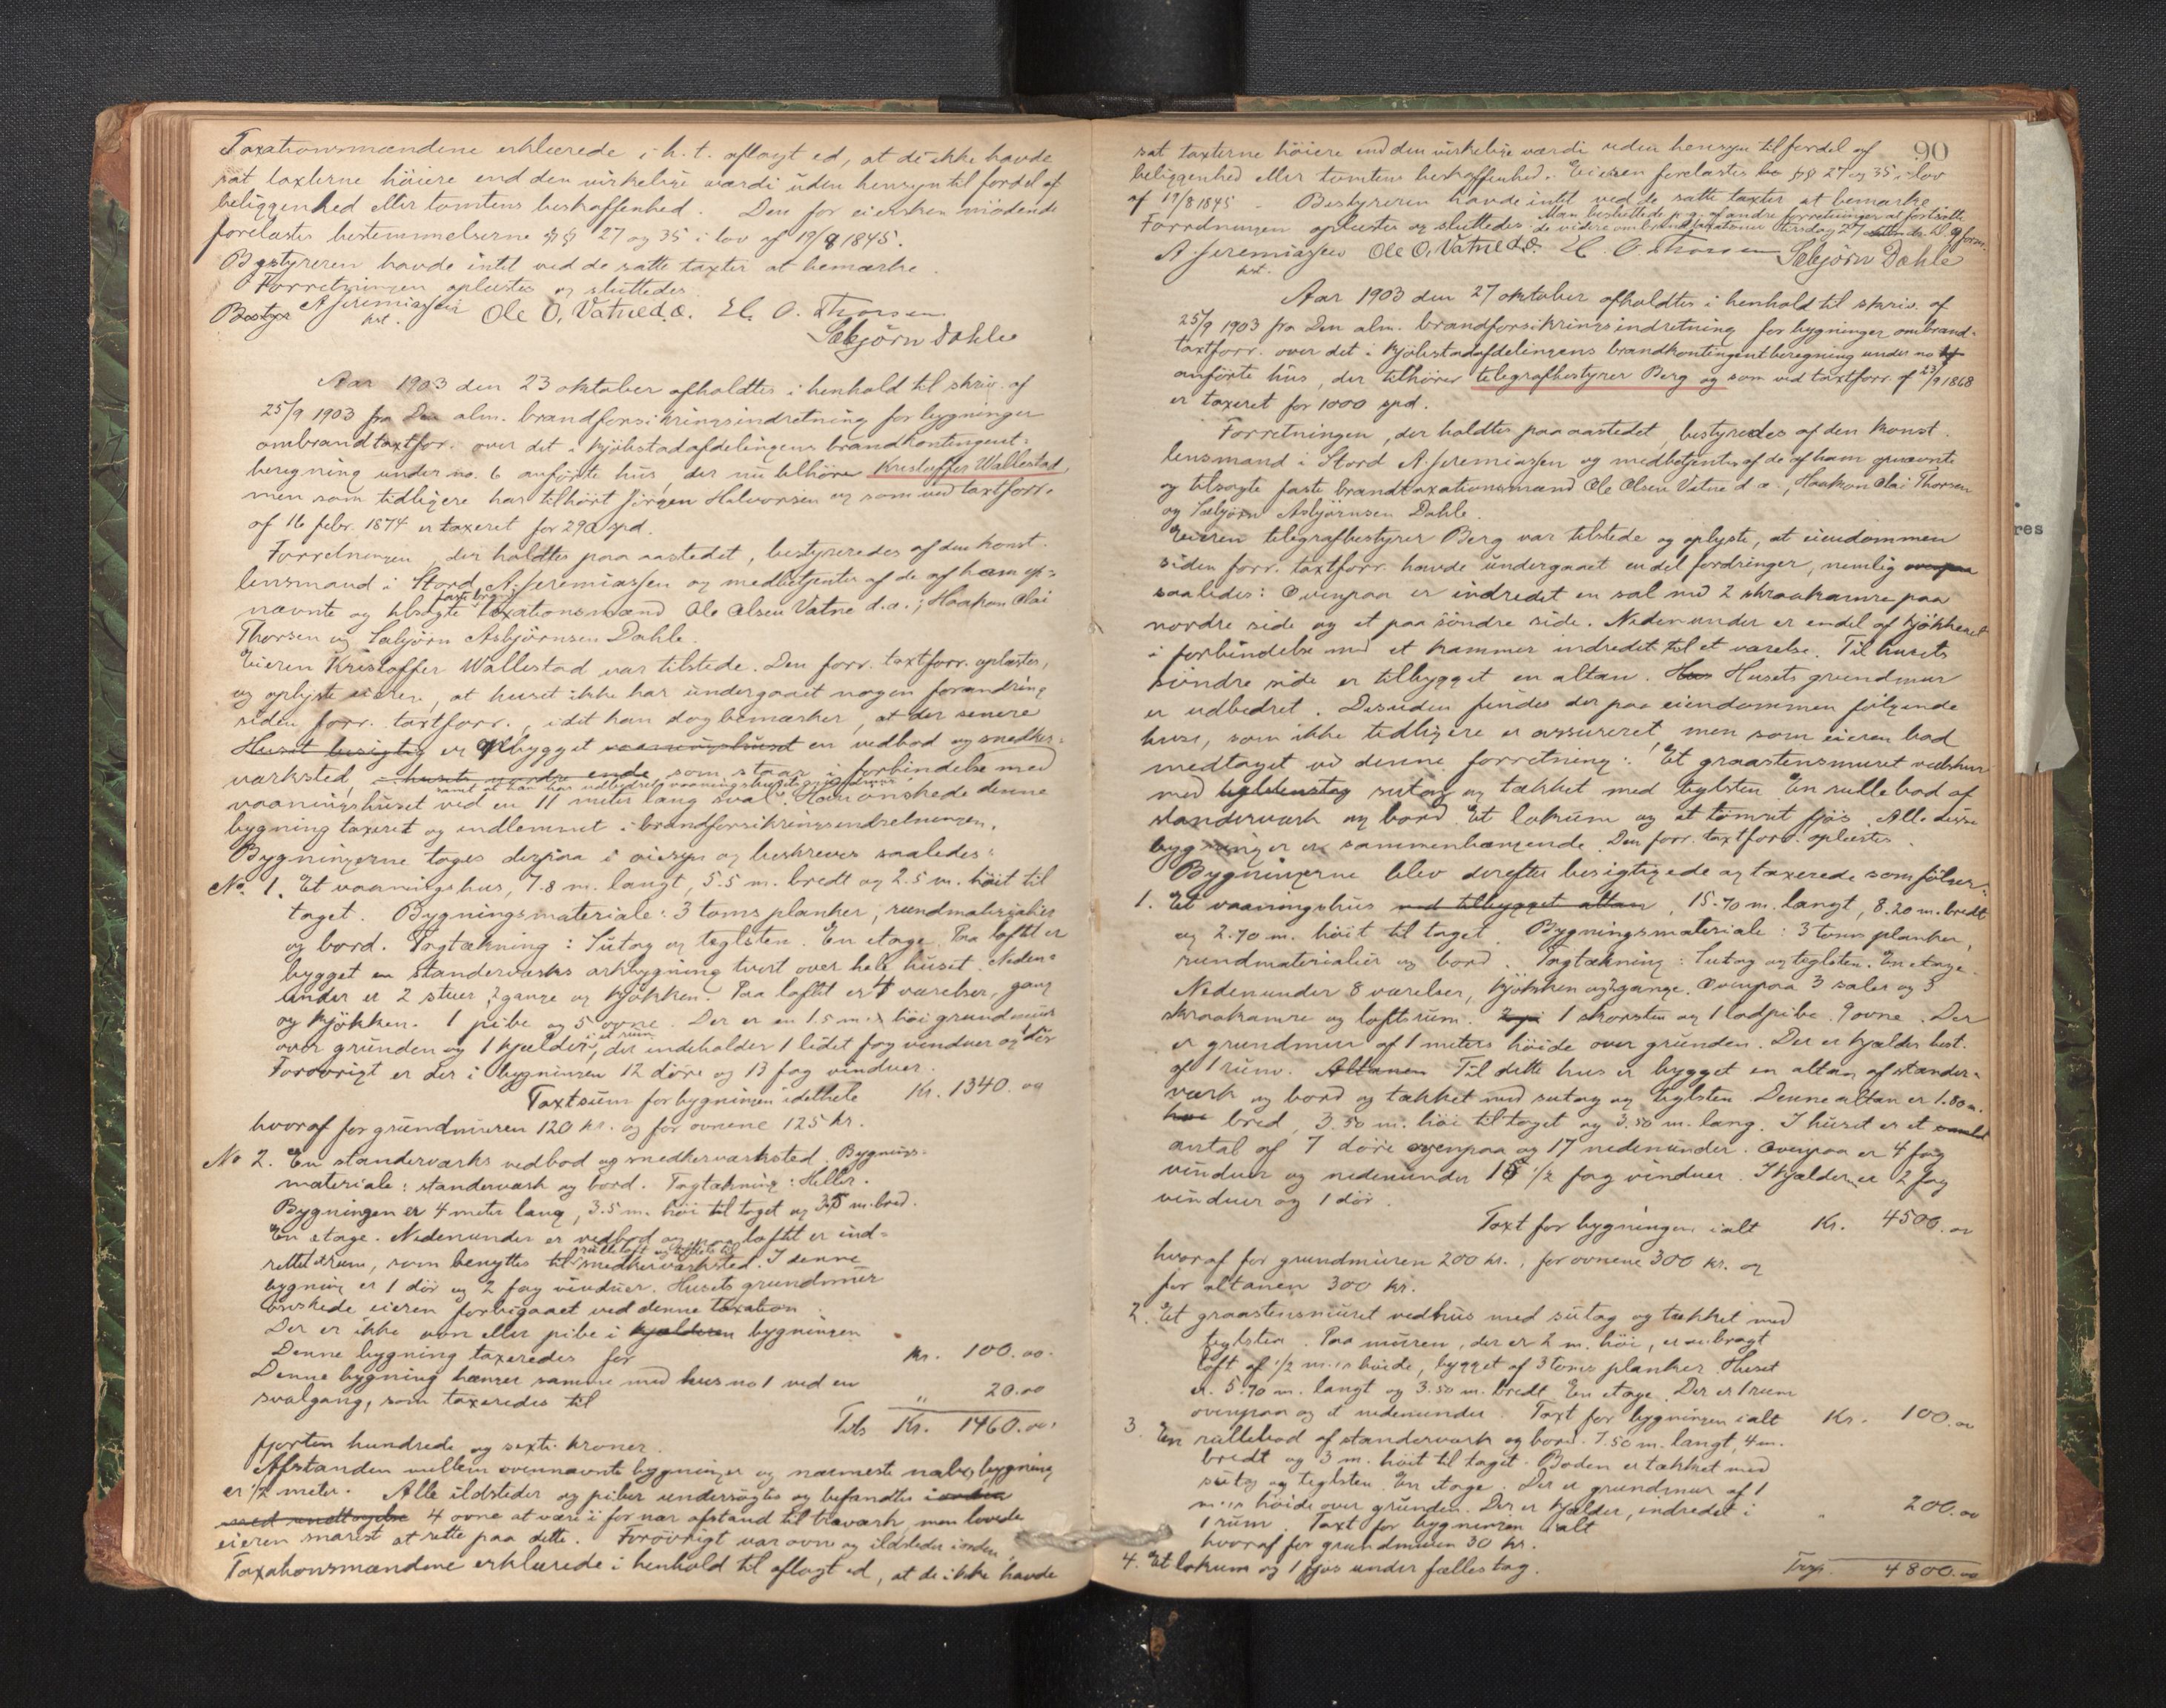 Taxationsmændene erklærede i h. t. aflagt ed, at de ikke havde
sat taxterne höiere end den virkelige værdi uden hensyn til fordel af
beliggenhed eller tomtens beskaffenhed. Den for eiersken mödende
forelæstes bestemmelserne §§ 27 og 35 i lov af 19/8 1845.
Bestyreren havde intet ved de satte taxter at bemærke.
Forretningen oplæstes og sluttedes
A Jeremiassen Ole O. Vatne d.e. H. O. Thorsen
kst.
Sæbjörn Dahle
Aar 1903 den 23 oktober afholdtes i henhold til skriv. af
25/9 1903 fra Den alm. brandforsikringsindretning for bygninger
ombrandtaxtfor. over det i kjöbstadafdelingens brandkontingent=
beregning under no. 6 anförte hus, der nu tilhörer Kristoffer Wallestad,
men som tidligere har tilhört Jörgen Halvorsen og som ved taxtforr.
af 16 febr. 1874 er taxeret for 290 spd.
Forretningen, der holdtes paa aastedet, bestyreredes af den konst.
lensmand i Stord A. Jeremiassen og medbetjentes af de af ham op=
nævnte og tilsagte faste brand taxationsmænd Ole Olsen Vatne d.æ., Haakon Olai
Thorsen og Sæbjörn Asbjörnsen Dahle.
Eieren Kristoffer Wallestad var tilstede. Den forr. taxtforr. oplæstes,
og oplyste eieren, at huset ikke har undergaaet nogen forandring
siden forr. taxtforr., idet han dog bemærker, at der senere
Huset besigtig er tilbygget vaaningshuset en vedbod og snedker=
værksted, i husets nordre ende som staar i forbindelse med
samt at han har udbedret vaaningshusets
vaaningshuset ved en 11 meter lang sval. Han önskede denne
bygning taxeret og indlemmet i brandforsikringsindretningen.
Bygningerne toges derpaa i öiesyn og beskreves saaledes:
No. 1. Et vaaningshus, 7.8 m. langt, 5.5 m. bredt og 2.5 m. höit til
taget. Bygningsmateriale: 3 toms planker, rundmaterialier
og bord. Tagtækning: Sutag og teglsten. En etage. Paa loftet er
bygget en standerværks arkbygning tvert over hele huset. Neden=
under er 2 stuer, 2 gange og kjökken. Paa loftet er 4 værelser, gang
og kjökken. 1 pibe og 5 ovne. Der er en 1.5 m. höi grundmur
over grunden og 1 kjelder i et rum, der indeholder 1 lidet fag vinduer og dör
Foroövrigt er der i bygningen 12 döre og 13 fag vinduer.
Taxtsum for bygningen i det hele Kr. 1340.00
hvoraf for grundmuren 120 kr. og for ovnene 125 kr.
No 2. En standerværks vedbod og snedkerværksted. Bygnings=
materiale: standerværk og bord. Tagtækning: Heller.
Bygningen er 4 meter lang, 3.5 m. höi til taget og 3.5 m. bred.
En etage. Nedenunder er vedbod og paa loftet er ind=
rettet et rum, som benyttes til snedkerværksted. I denne
bygning er 1 dör og 2 fag vinduer. Husets grundmur
önskede eieren forbigaaet ved denne taxation.
Der er ikke ovn eller pibe i kjælderen bygningen
Denne bygning taxeredes for kr. 100.00.
Denne bygning hænger samme med hus no 1 ved en
svalgang, som taxeredes til " 20.00
Tils Kr. 1460.00,
fjorten hundrede og sexti kroner.
Afstanden mellem ovennævnte bygninger og nærmeste nabos bygning
er 1/2 meter. Alle ildsteder og piber undersögtes og befandtes i orden
med undtagelse 4 ovne at være i for nær afstand til træværk, men lovede
eieren snarest at rette paa dette. Foröövrigt var ovne og ildsteder i orden.
Taxationsmændene erklærede i henhold til aflagt ed, at de ikke havde
90
sat taxterne höiere end den virkelige værdi uden hensyn til fordel af
beliggenhed eller tomtens beskaffenhed. Eieren forelæstes be §§ 27 og 35 i lov
af 19/8 1845. Bestyreren havde intet ved de satte taxter at bemærke
Man besluttede p.g. af andre forretninger at fortsætte
Forretningen oplæstes og sluttedes. de videre ombrandtaxationer tirsdag 27 oktober kl. 9 form.
A Jeremiassen Ole O. Vatne d.æ. H. O. Thorsen Sæbjörn Dahle
kst.
Aar 1903 den 27 oktober afholdtes i henhold til skriv. af
25/9 1903 fra Den alm. brandforsikringsindretning for bygninger ombrand=
taxtforr. over det i kjöbstadafdelingens brandkontingentberegning under no
anförte hus, der tilhörer telegrafbestyrer Berg og som ved taxtforr. af 23/9 1868
er taxeret for 1000 spd.
Forretningen, der holdtes paa aastedet, bestyredes af den konst.
lensmand i Stord A. Jeremiassen og medbetjentes af de af ham opnævnte
og tilsagte faste brandtaxationsmænd Ole Olsen Vatne d.æ., Haakon Olai Thorsen
og Sæbjörn Asbjörnsen Dahle.
Eieren telegrafbestyrer Berg var tilstede og oplyste, at eiendommen
siden forr. taxtforr. havde undergaaet endel fordringer, nemlig ovenpaa
saaledes: Ovenpaa er indredet en sal med 2 skraakamre paa
nordre side og et paa söndre side. Nedenunder er endel af kjökkenet
i forbindelse med et kammer indredet til et værelse. Til husets
söndre side er tilbygget en altan. Hus Husets grundmur
er udbedret. Desuden findes der paa eiendommen fölgende
huse, som ikke tidligere er assureret, men som eieren bad
medtaget ved denne forretning: Et graastensmuret vedskur
med teglstenstag sutag og tækket med teglsten. En rullebod af
standerværk og bord. Et lokum og et tömret fjös. Alle disse
bygninger er sammenhængende. Den forr. taxtforr. oplæstes.
Bygningerne blev derefter besigtigede og taxerede som fölger:
1. Et vaaningshus med tilbygget altan, 15.70 m. langt, 8.20 m. bredt
og 2.70 m. höit til taget. Bygningsmateriale: 3 toms planker,
rundmaterialier og bord. Tagtækning: Sutag og teglsten. En etage.
Nedenunder 8 værelser, kjökken og 2 gange. Ovenpaa 3 saler og 3
skraakamre og loftsrum. 2 pi 1 skorsten og 1 lodpibe. 9 ovne. Der
er grundmur af 1 meters höide over grunden. Der er kjælder best.
af 1 rum. Altanen Til dette hus er bygget en altan af stander=
værk og bord og tækket med sutag og teglsten. Denne altan er 1.80 m.
höi bred, 3.50 m. höi til taget og 3.50 m. lang. I huset er et samlet
antal af 7 döre ovenpaa og 17 nedenunder. Ovenpaa er 4 fag
vinduer og nedenunder 15 1/2 fag vinduer. I kjælder er 2 fag
vinduer og 1 dör.
Taxt for bygningen ialt Kr. 4500.00
hvoraf for grundmuren 200 kr., for ovnene 300 kr. og
for altanen 300 kr.
2. Et graastensmuret vedhus med sutag og tækket med
teglsten. Paa muren, der er 2 m. höi, er anbragt
loft af 1/2 m.s höide, bygget af 3 toms planker. Huset
er 5.70 m. langt og 3.50 m. bredt. En etage. Der er 1 rum
ovenpaa og et nedenunder. Taxt for bygningen ialt Kr. 100.00
3. En rullebod af standerværk og bord. 7.50 m. langt, 4 m.
bredt og 3 m. höit til taget. Boden er tækket med
sutag og teglsten. En etage. Der er grundmur af 1
m.s höide over grunden. Der er kjælder, indredet i
1 rum. Taxt for bygningen ialt " 200.00
hvoraf for grundmuren 30 kr.
4. Et lokum og 1 fjös under fælles tag.
Trsp. 4800.00
res